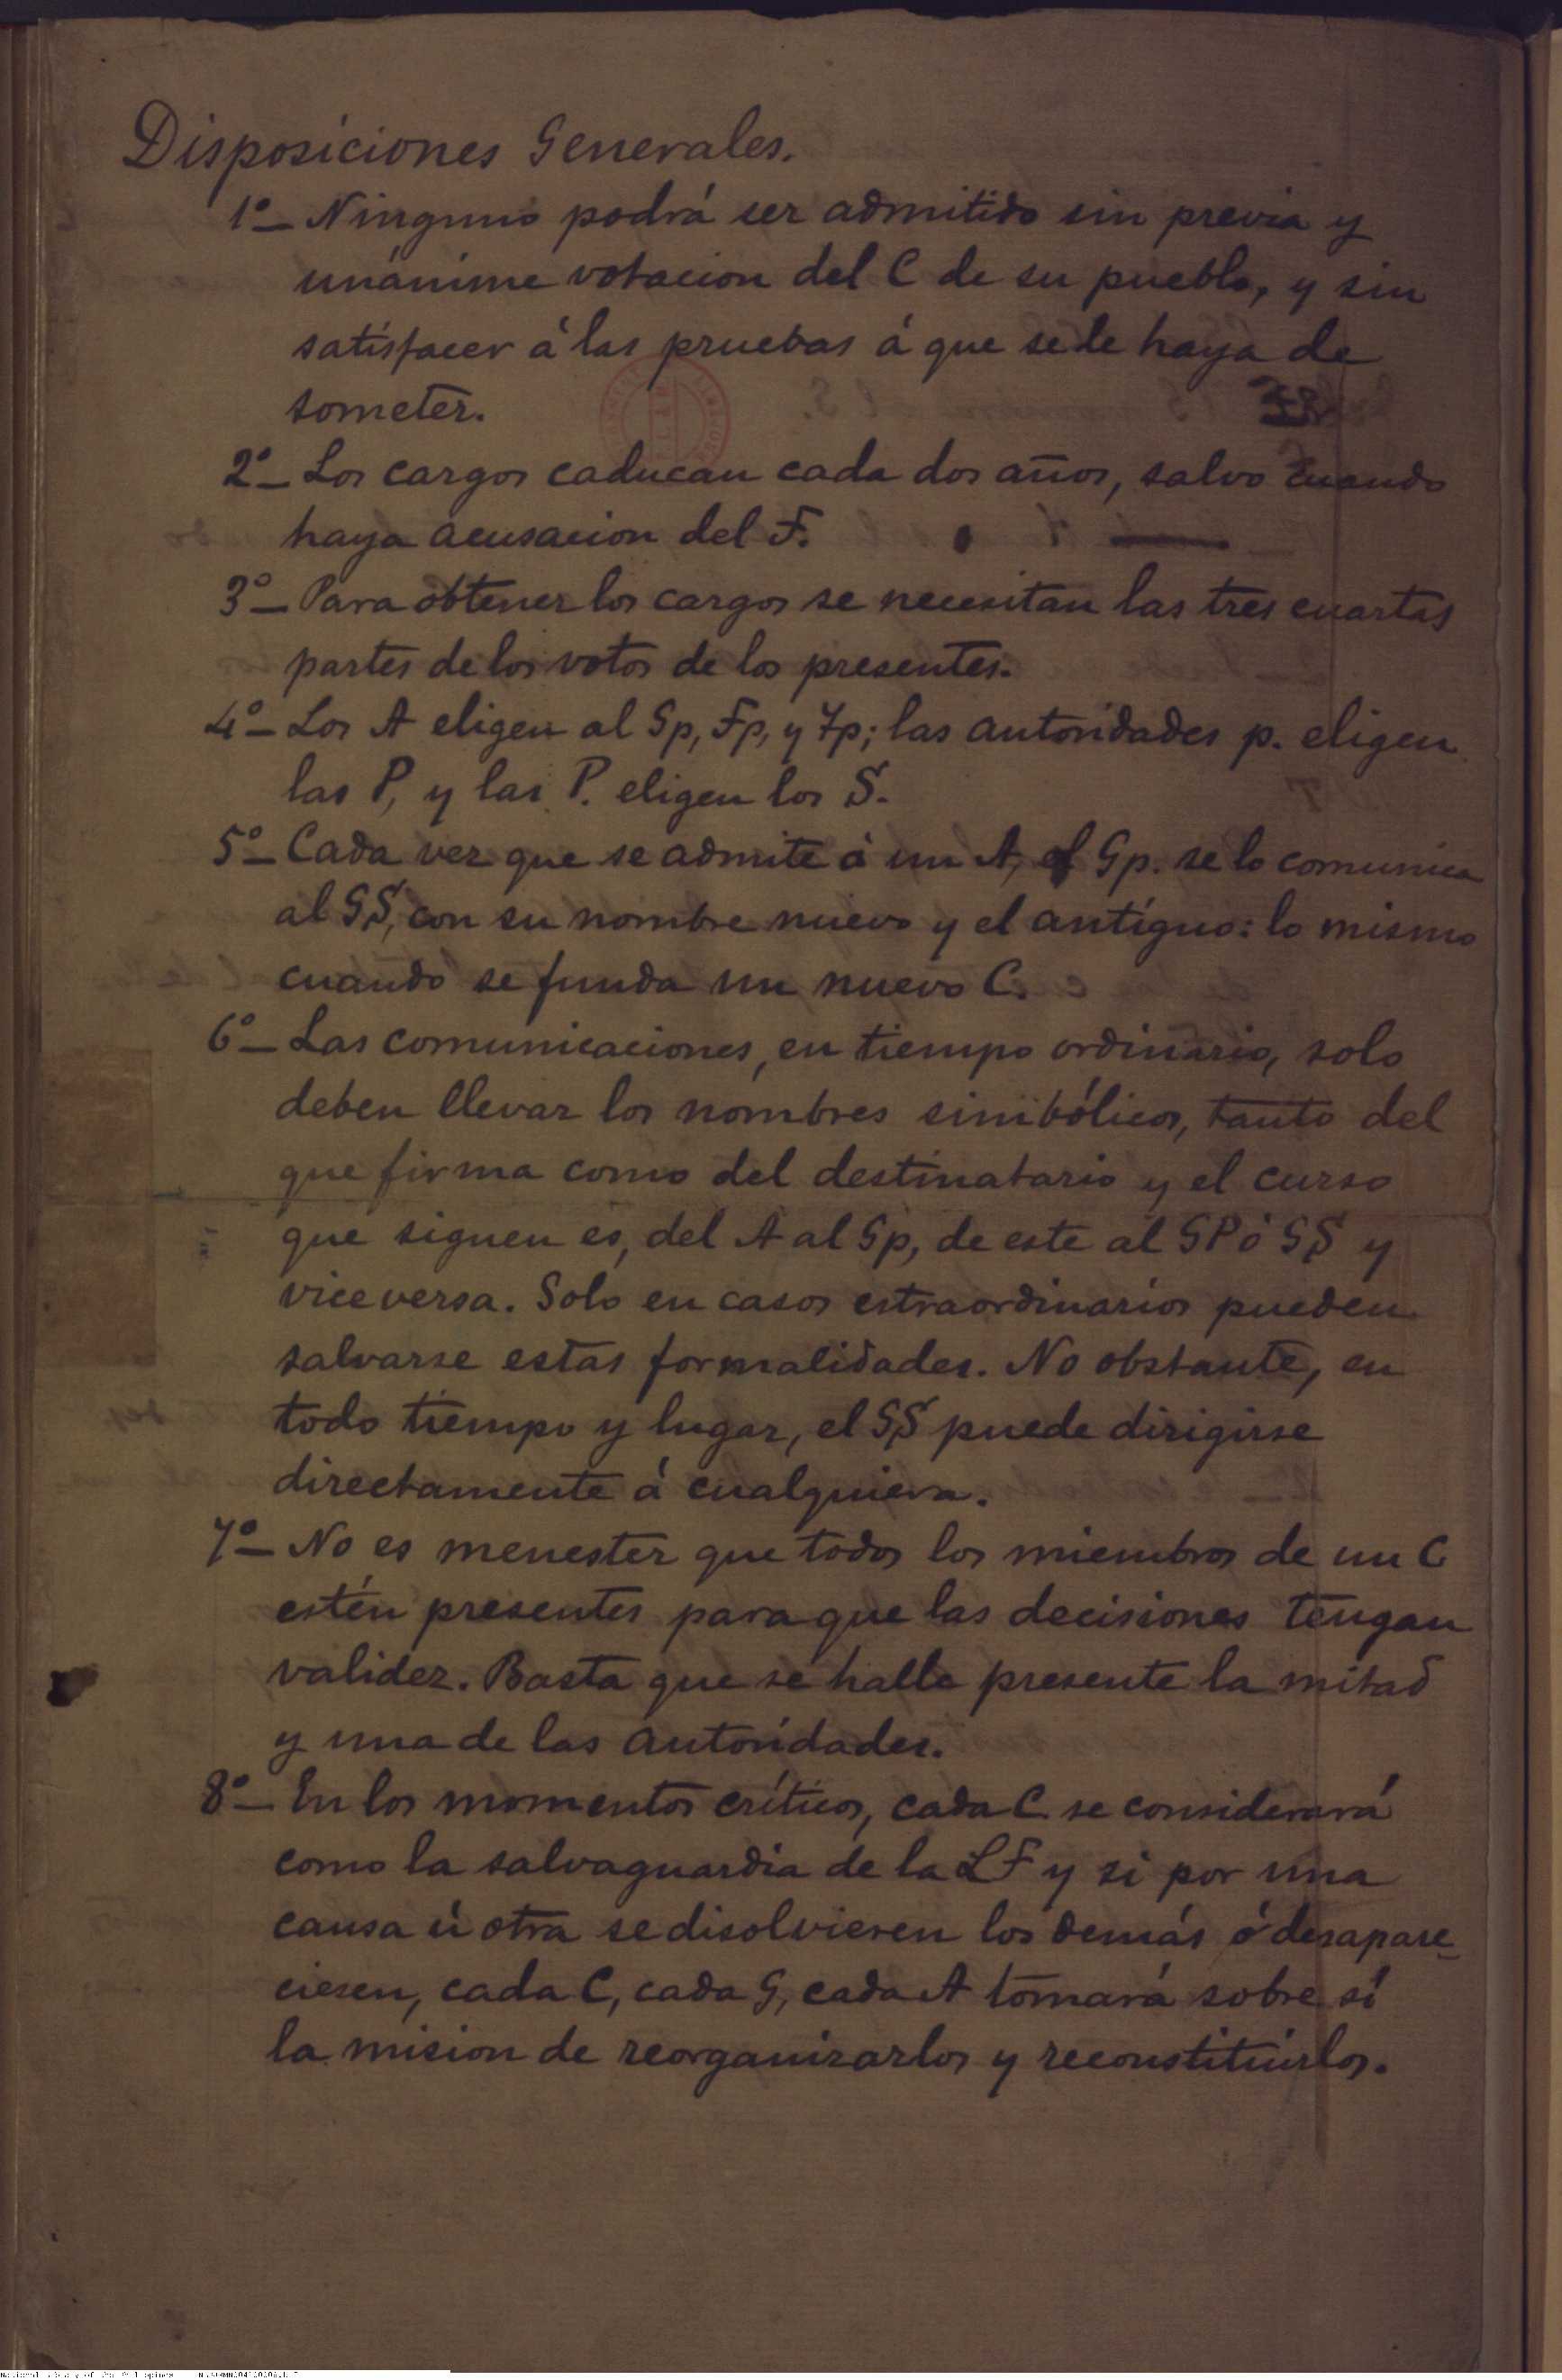 Disposiciones Generales.
1º– Ninguno podrá ser admitido sin previa y
unánime votacion del C de su pueblo, y sin
satisfacer á las pruebas á que se le haya de
someter.
2º– Los cargos caducan cada dos años, salvo cuando
haya acusacion del F.
3º– Para obtener los cargos se necesitan las tres cuartas
partes de los votos de los presentes.
4º– Los A eligen al Gp, Fp, y Tp; las autoridades p. eligen
las P, y las P. eligen los S.
5º– Cada vez que se admite á un A, el Gp. se lo comunica
al GS, con su nombre nuevo y el antíguo: lo mismo
cuando se funda un nuevo C.
6º– Las comunicaciones, en tiempo ordinario, solo
deben llevar los nombres simbólicos, tanto del
que firma como del destinatario y el curso
que siguen es, del A al Gp, de este al GP ó GS y
vice versa. Solo en casos estraordinarios pueden
salvarse estas formalidades. No obstante, en
todo tiempo y lugar, el GS puede dirigirse
directamente á cualquiera.
7º– No es menester que todos los miembros de un C
estén presentes para que las decisiones tengan
validez. Basta que se halle presente la mitad
y una de las autoridades.
8º– En los momentos críticos, cada C se considerará
como la salvaguardia de la LF y si por una
causa ú otra se disolvieren los demás ó desapare-
ciesen, cada C, cada G, cada A tomará sobre sí
la mision de reorganizarlos y reconstituirlos.